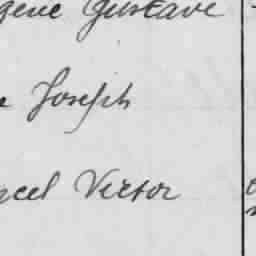 gene Gustave
Joseph
rcel Victor